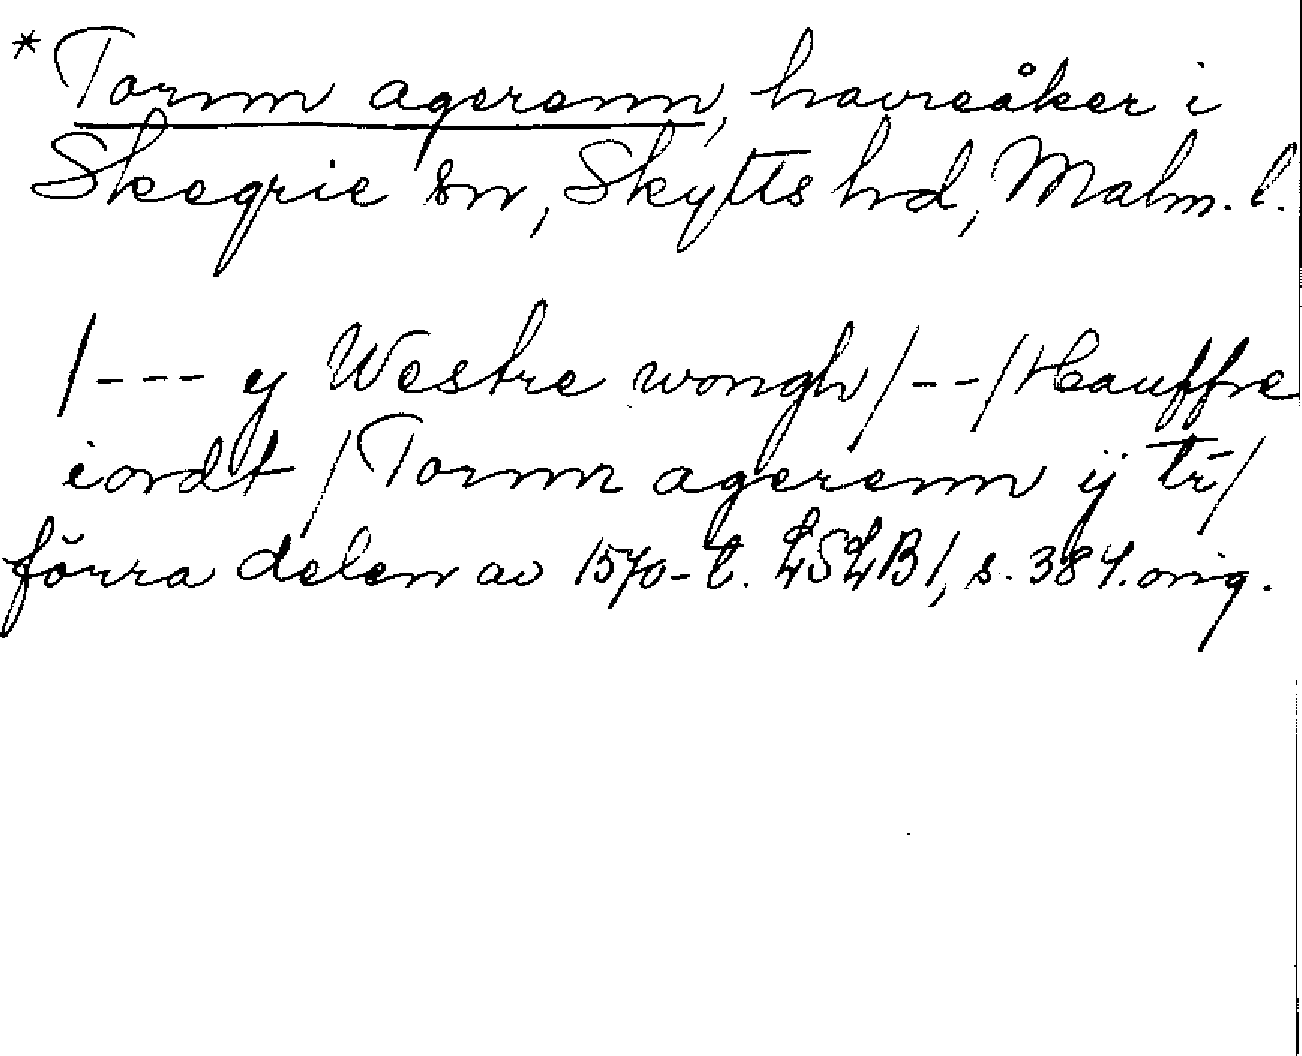 *Tornn agerenn, havreåker i
Skegrie sn, Skytts hd, Malm. l.
/--- y Westre wongh/--/Hauffre
iordt /Tornn agerenn ij tr/
förra delen av 1570-t. LSLB1, s. 384. orig.